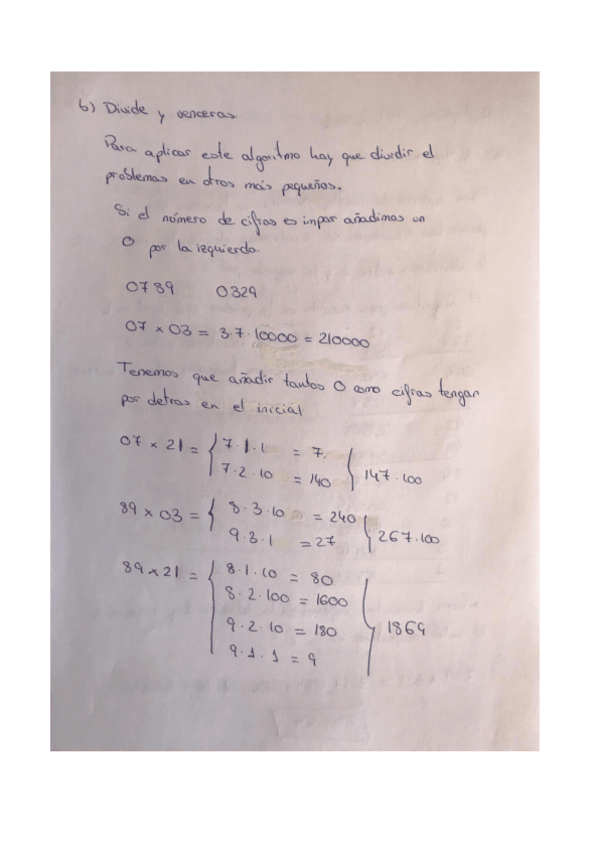 b) Divide y venceras
Para aplicar este algoritmo hay que dividir el
problemas en otros más pequeños.
Si el número de cifras es impar añadimos un
0 por la izquierda.
0789 0329
07 x 03 = 3·7·10000 = 210000
Tenemos que añadir tantos 0 como cifras tengan
por detras en el inicial
07 x 21 = { 7·1·1 = 7
7·2·10 = 140 } 147·100
89 x 03 = { 8·3·10 = 240
9·3·1 = 27 } 267·100
89 x 21 = { 8·1·10 = 80
8·2·100 = 1600
9·2·10 = 180 } 1869
9·1·1 = 9